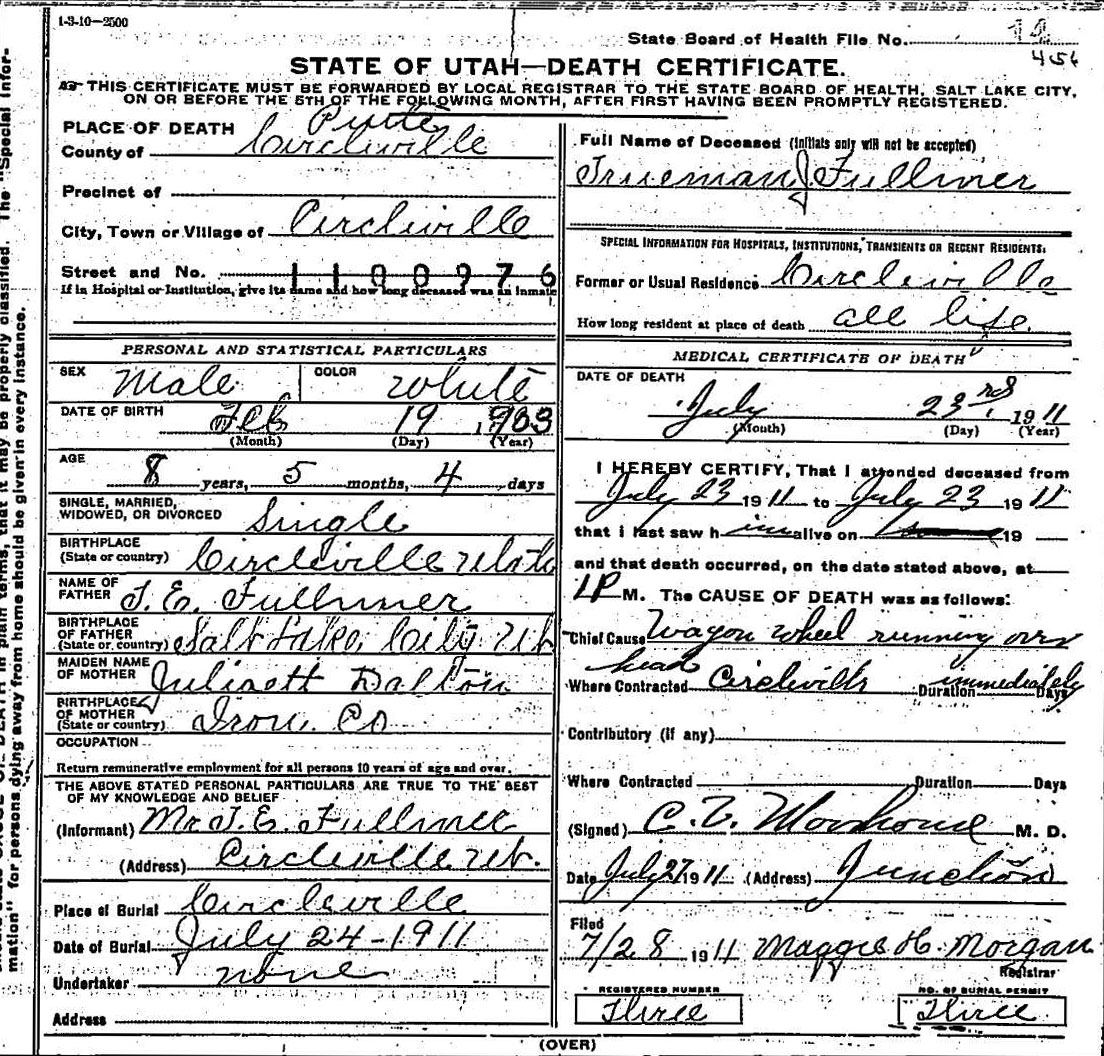 1-3-10-2500
State Board of Health File No.
456
STATE OF UTAH—DEATH CERTIFICATE.
THIS CERTIFICATE MUST BE FORWARDED BY LOCAL REGISTRAR TO THE STATE BOARD OF HEALTH, SALT LAKE CITY,
ON OR BEFORE THE 5TH OF THE FOLLOWING MONTH, AFTER FIRST HAVING BEEN PROMPTLY REGISTERED.
PLACE OF DEATH Piute
County of Circleville
Precinct of
City, Town or Village of Circleville
Street and No. 1100976
If in Hospital or Institution, give its name and how long deceased was an inmate
PERSONAL AND STATISTICAL PARTICULARS
SEX Male COLOR White
DATE OF BIRTH Feb 19 1903
(Month) (Day) (Year)
AGE 8 years, 5 months, 4 days
SINGLE, MARRIED,
WIDOWED, OR DIVORCED Single
BIRTHPLACE
(State or country) Circleville Utah
NAME OF
FATHER J. E. Fullmer
BIRTHPLACE
OF FATHER
(State or country) Salt Lake City Ut
MAIDEN NAME
OF MOTHER Juliaett Dalton
BIRTHPLACE
OF MOTHER
(State or country) Iron Co
OCCUPATION
Return remunerative employment for all persons 10 years of age and over.
THE ABOVE STATED PERSONAL PARTICULARS ARE TRUE TO THE BEST
OF MY KNOWLEDGE AND BELIEF
(Informant) Mr J. E. Fullmer
(Address) Circleville Ut.
Place of Burial Circleville
Date of Burial July 24-1911
Undertaker none
Address
Full Name of Deceased (Initials only will not be accepted)
Trueman J Fullmer
SPECIAL INFORMATION FOR HOSPITALS, INSTITUTIONS, TRANSIENTS OR RECENT RESIDENTS.
Former or Usual Residence Circleville
How long resident at place of death all life
MEDICAL CERTIFICATE OF DEATH
DATE OF DEATH
July 23rd 1911
(Month) (Day) (Year)
I HEREBY CERTIFY, That I attended deceased from
July 23 1911 to July 23 1911
that i last saw h im alive on 19
and that death occurred, on the date stated above, at
1P M. The CAUSE OF DEATH was as follows:
Chief Cause Wagon wheel running over
head
Where Contracted Circleville Duration immediately Days
Contributory (if any)
Where Contracted Duration Days
(Signed) C. T. Morehouse M. D.
Date July 27 1911 (Address) Junction
Filed
7/28 1911 Maggie H. Morgan
Registrar
REGISTERED NUMBER
Three
NO. OF BURIAL PERMIT
Three
(OVER)
DEATH in plain terms, that it may be properly classified. The "Special Infor-
mation" for persons dying away from home should be given in every instance.